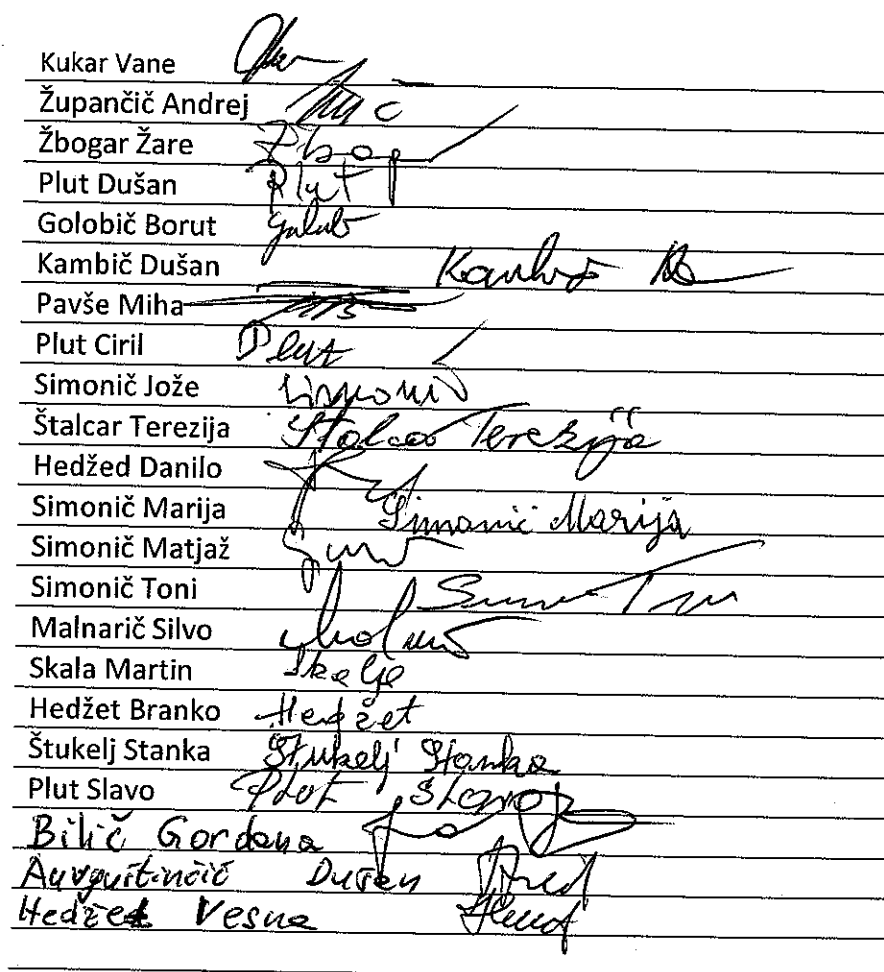 Kukar Vane
Župančič Andrej
Žbogar Žare
Plut Dušan Plut
Golobič Borut
Kambič Dušan
Pavše Miha
Plut Ciril Plut
Simonič Jože Simonič
Štalcar Terezija Štalcar Terezija
Hedžed Danilo
Simonič Marija Simonič Marija
Simonič Matjaž
Simonič Toni
Malnarič Silvo
Skala Martin
Hedžet Branko Hedžet
Štukelj Stanka Štukelj Stanka
Plut Slavo Plut Slavo
Bilič Gordana
Auvguštinčič Dušan
Hedžet Vesna